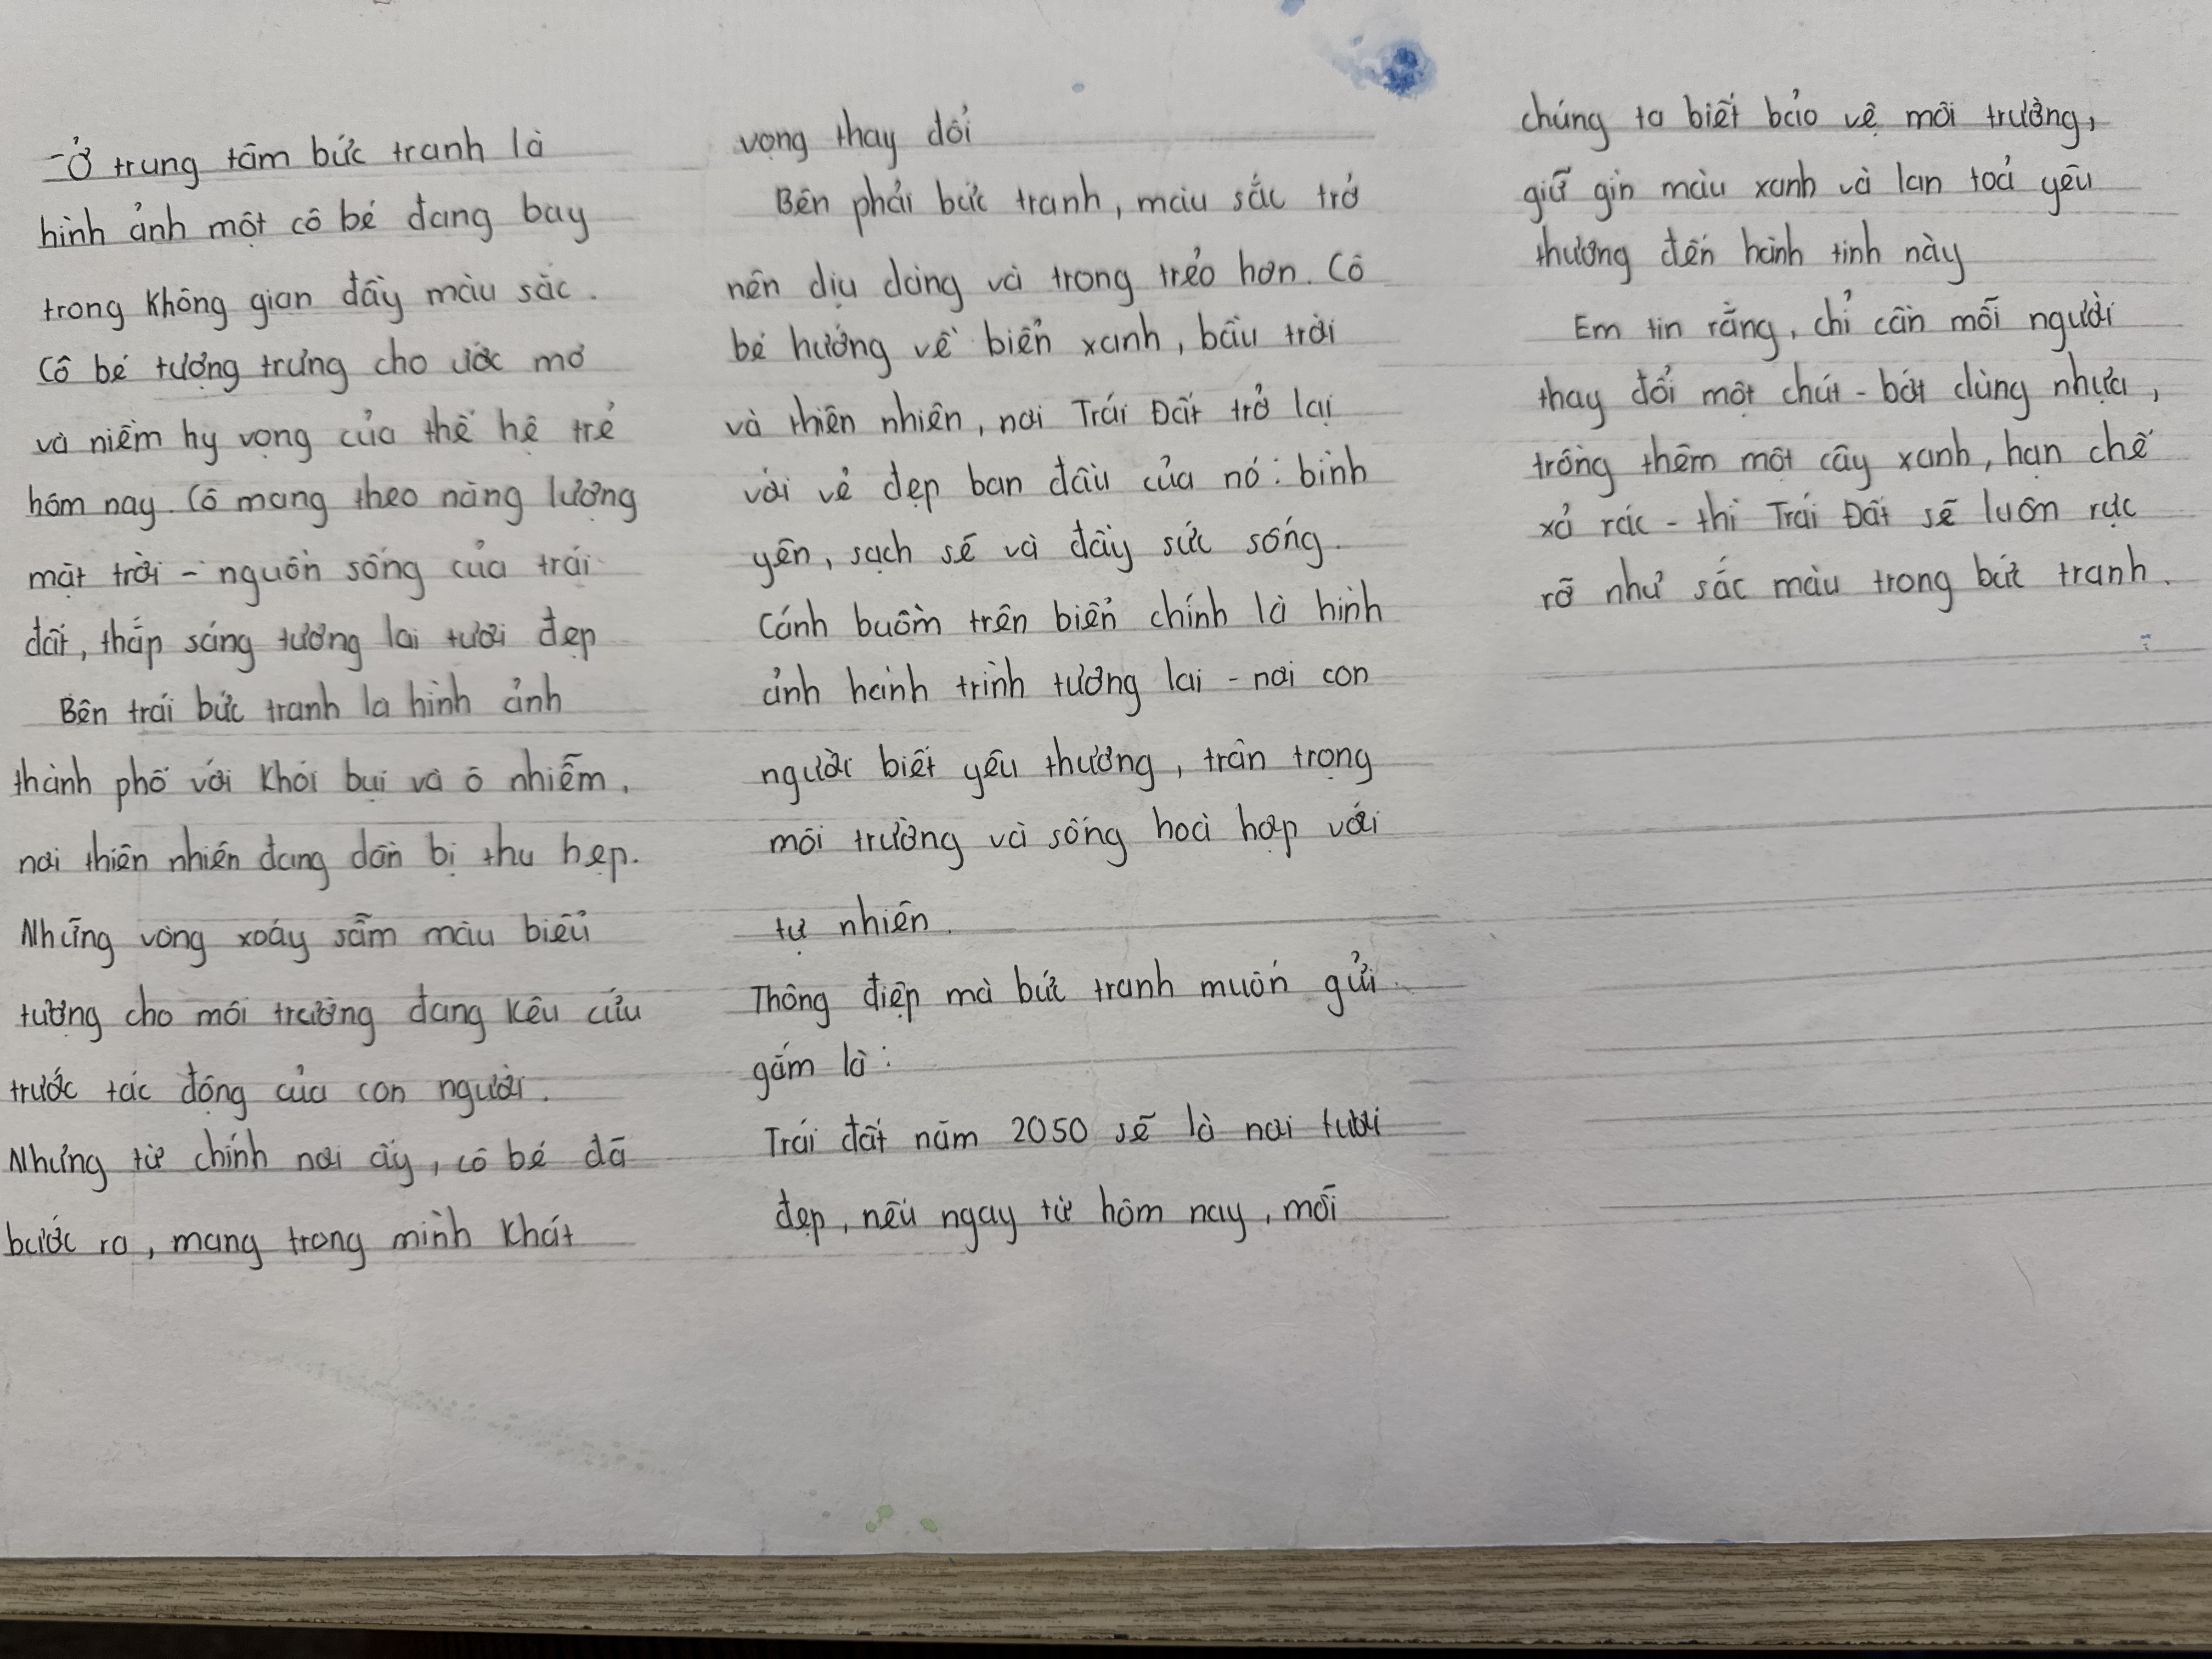 - Ở trung tâm bức tranh là
hình ảnh một cô bé đang bay
trong không gian đầy màu sắc.
Cô bé tượng trưng cho ước mơ
và niềm hy vọng của thế hệ trẻ
hôm nay. Cô mang theo năng lượng
mặt trời - nguồn sống của trái
đất, thắp sáng tương lai tươi đẹp
Bên trái bức tranh la hình ảnh
thành phố với khói bụi và ô nhiễm,
nơi thiên nhiên đang dần bị thu hẹp.
Những vòng xoáy sẫm màu biểu
tượng cho môi trường đang kêu cứu
trước tác động của con người.
Nhưng từ chính nơi ấy, cô bé đã
bước ra, mang trong mình khát
vọng thay đổi
Bên phải bức tranh, màu sắc trở
nên dịu dàng và trong trẻo hơn. Cô
bé hướng về biển xanh, bầu trời
và thiên nhiên, nơi Trái Đất trở lại
với vẻ đẹp ban đầu của nó: bình
yên, sạch sẽ và đầy sức sống.
Cánh buồm trên biển chính là hình
ảnh hành trình tương lai - nơi con
người biết yêu thương, trân trọng
môi trường và sống hoà hợp với
tự nhiên.
Thông điệp mà bức tranh muốn gửi
gắm là:
Trái đất năm 2050 sẽ là nơi tươi
đẹp, nếu ngay từ hôm nay, mỗi
chúng ta biết bảo vệ môi trường,
giữ gìn màu xanh và lan toả yêu
thương đến hành tinh này
Em tin rằng, chỉ cần mỗi người
thay đổi một chút - bớt dùng nhựa,
trồng thêm một cây xanh, hạn chế
xả rác - thì Trái Đất sẽ luôn rực
rỡ như sắc màu trong bức tranh.